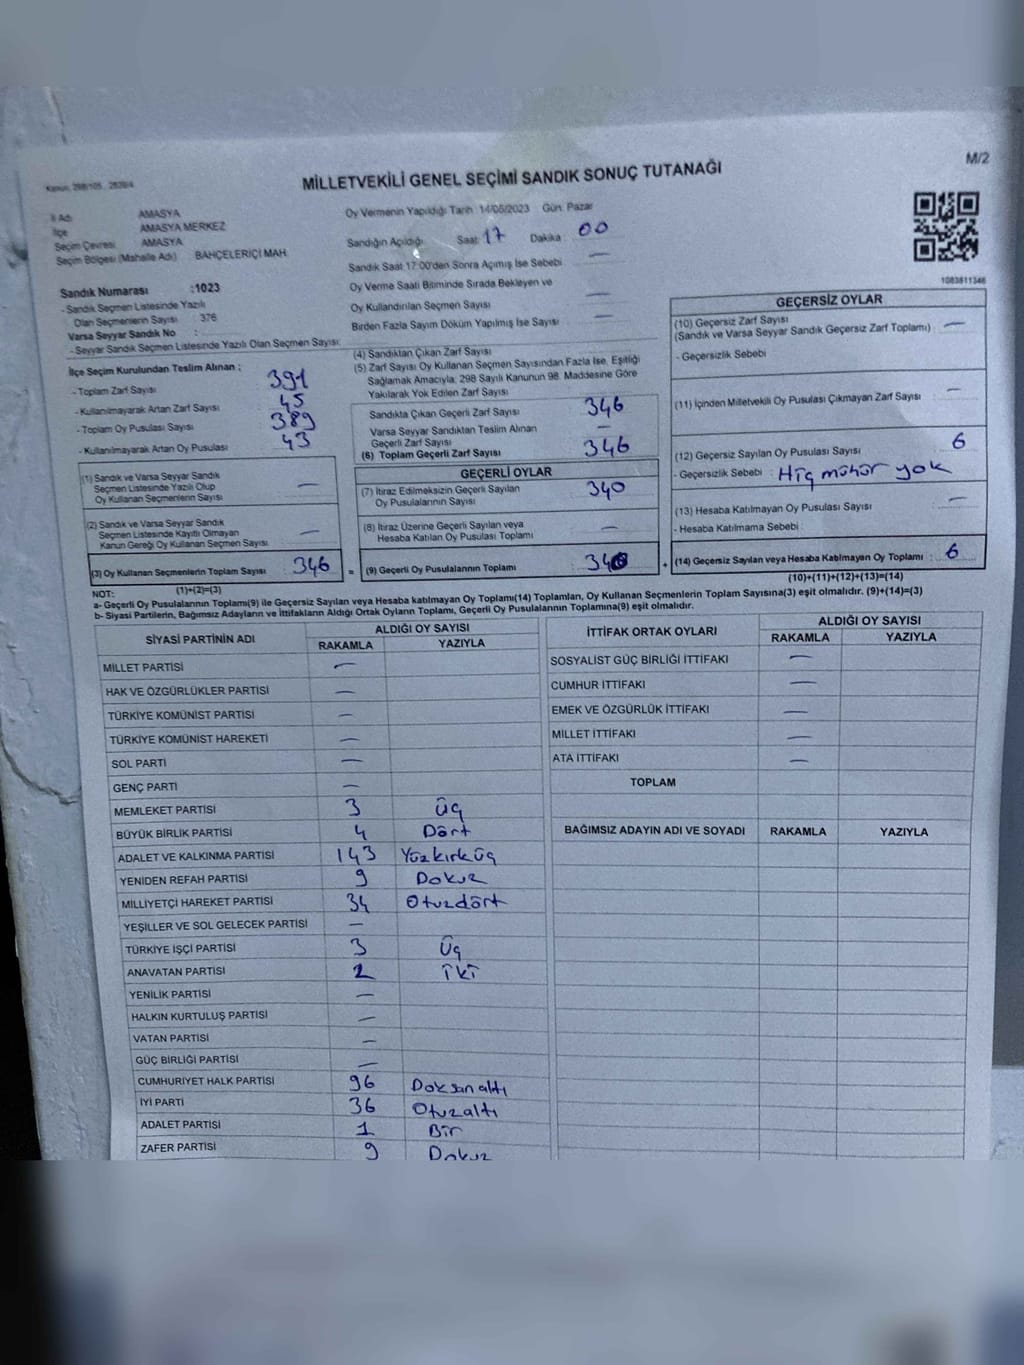 M/2
Kanun: 298/105 , 2839/4
MİLLETVEKİLİ GENEL SEÇİMİ SANDIK SONUÇ TUTANAĞI
İl Adı AMASYA
İlçe AMASYA MERKEZ
Seçim Çevresi AMASYA
Seçim Bölgesi (Mahalle Adı) BAHÇELERİÇİ MAH.
Oy Vermenin Yapıldığı Tarih : 14/05/2023 Gün: Pazar
Sandığın Açıldığı Saat: 17 Dakika : 00
Sandık Saat 17:00'den Sonra Açımış İse Sebebi —
Oy Verme Saati Bitiminde Sırada Bekleyen ve
Oy Kullandırılan Seçmen Sayısı —
Birden Fazla Sayım Döküm Yapılmış İse Sayısı —
1083811346
Sandık Numarası :1023
- Sandık Seçmen Listesinde Yazılı
Olan Seçmenlerin Sayısı 376
Varsa Seyyar Sandık No :
- Seyyar Sandık Seçmen Listesinde Yazılı Olan Seçmen Sayısı:
İlçe Seçim Kurulundan Teslim Alınan ;
- Toplam Zarf Sayısı 391
- Kullanılmayarak Artan Zarf Sayısı 45
- Toplam Oy Pusulası Sayısı 389
- Kullanılmayarak Artan Oy Pusulası 43
(1) Sandık ve Varsa Seyyar Sandık
Seçmen Listesinde Yazılı Olup
Oy Kullanan Seçmenlerin Sayısı —
(2) Sandık ve Varsa Seyyar Sandık
Seçmen Listesinde Kayıtlı Olmayan
Kanun Gereği Oy Kullanan Seçmen Sayısı —
(3) Oy Kullanan Seçmenlerin Toplam Sayısı : 346 =
(1)+(2)=(3)
(4) Sandıktan Çıkan Zarf Sayısı
(5) Zarf Sayısı Oy Kullanan Seçmen Sayısından Fazla İse, Eşitliği
Sağlamak Amacıyla, 298 Sayılı Kanunun 98. Maddesine Göre
Yakılarak Yok Edilen Zarf Sayısı
Sandıkta Çıkan Geçerli Zarf Sayısı 346
Varsa Seyyar Sandıktan Teslim Alınan
Geçerli Zarf Sayısı —
(6) Toplam Geçerli Zarf Sayısı 346
GEÇERLİ OYLAR
(7) İtiraz Edilmeksizin Geçerli Sayılan
Oy Pusulalarının Sayısı 340
(8) İtiraz Üzerine Geçerli Sayılan veya
Hesaba Katılan Oy Pusulası Toplamı —
(9) Geçerli Oy Pusulalarının Toplamı 340 +
GEÇERSİZ OYLAR
(10) Geçersiz Zarf Sayısı
(Sandık ve Varsa Seyyar Sandık Geçersiz Zarf Toplamı) : —
- Geçersizlik Sebebi
(11) İçinden Milletvekili Oy Pusulası Çıkmayan Zarf Sayısı —
(12) Geçersiz Sayılan Oy Pusulası Sayısı 6
- Geçersizlik Sebebi : Hiç mühür yok
(13) Hesaba Katılmayan Oy Pusulası Sayısı —
- Hesaba Katılmama Sebebi
(14) Geçersiz Sayılan veya Hesaba Katılmayan Oy Toplamı : 6
(10)+(11)+(12)+(13)=(14)
NOT:
a- Geçerli Oy Pusulalarının Toplamı(9) ile Geçersiz Sayılan veya Hesaba katılmayan Oy Toplamı(14) Toplamları, Oy Kullanan Seçmenlerin Toplam Sayısına(3) eşit olmalıdır. (9)+(14)=(3)
b- Siyasi Partilerin, Bağımsız Adayların ve İttifakların Aldığı Oyların Toplamı, Geçerli Oy Pusulalarının Toplamına(9) eşit olmalıdır.
SİYASİ PARTİNİN ADI ALDIĞI OY SAYISI
RAKAMLA YAZIYLA
MİLLET PARTİSİ —
HAK VE ÖZGÜRLÜKLER PARTİSİ —
TÜRKİYE KOMÜNİST PARTİSİ —
TÜRKİYE KOMÜNİST HAREKETİ —
SOL PARTİ —
GENÇ PARTİ —
MEMLEKET PARTİSİ 3 üç
BÜYÜK BİRLİK PARTİSİ 4 Dört
ADALET VE KALKINMA PARTİSİ 143 Yüzkırküç
YENİDEN REFAH PARTİSİ 9 Dokuz
MİLLİYETÇİ HAREKET PARTİSİ 34 Otuzdört
YEŞİLLER VE SOL GELECEK PARTİSİ —
TÜRKİYE İŞÇİ PARTİSİ 3 Üç
ANAVATAN PARTİSİ 2 İki
YENİLİK PARTİSİ —
HALKIN KURTULUŞ PARTİSİ —
VATAN PARTİSİ —
GÜÇ BİRLİĞİ PARTİSİ —
CUMHURİYET HALK PARTİSİ 96 Doksanaltı
İYİ PARTİ 36 Otuzaltı
ADALET PARTİSİ 1 Bir
ZAFER PARTİSİ 9 Dokuz
İTTİFAK ORTAK OYLARI ALDIĞI OY SAYISI
RAKAMLA YAZIYLA
SOSYALİST GÜÇ BİRLİĞİ İTTİFAKI —
CUMHUR İTTİFAKI —
EMEK VE ÖZGÜRLÜK İTTİFAKI —
MİLLET İTTİFAKI —
ATA İTTİFAKI —
TOPLAM
BAĞIMSIZ ADAYIN ADI VE SOYADI RAKAMLA YAZIYLA